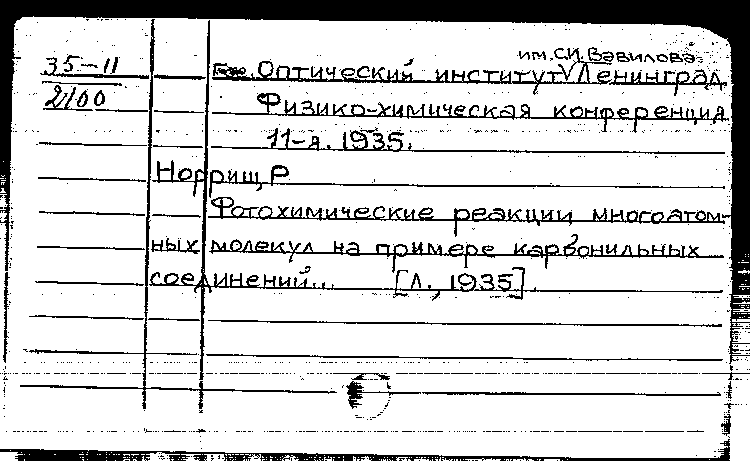 им. С.И. Вавилова.
35-11 Гос. Оптический институт √ Ленинград.
2100 Физико-химическая конференция
11-я. 1935.
Норриш, Р
Фотохимические реакции многоатом-
ных молекул на примере карбонильных
соединений... [Л., 1935].